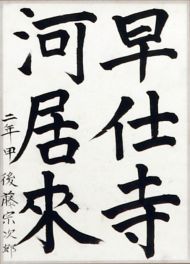 早仕寺
河居來
二年甲 後藤宗次郎